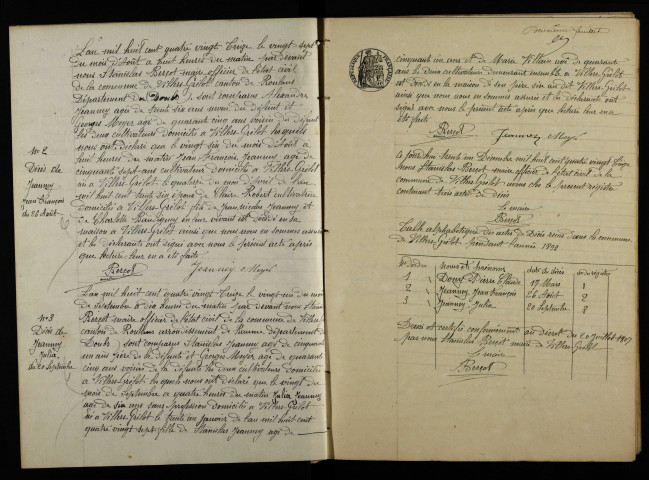 L'an mil huit cent quatre vingt treize le vingt-sept
du mois d'Août à huit heures du matin par devant
nous Stanislas Berçot maire officier de l'état civil
de la commune de Villers Grélot canton de Roulans
Département du Doubs, sont comparus Alexandre
Jeanney agé de trente six ans neveu du défunt et
Georges Meyer agé de quarante cinq ans voisin du défunt
les deux cultivateurs domicilié à Villers Grélot lesquels
nous ont déclaré que le vingt six du mois d'Août à
huit heures du matin Jean François Jeanney agé de
cinquante sept ans cultivateur domicilié à Villers Grélot
né à Villers Grélot le quatorze du mois d'Avril de l'an
mil huit cent trente six époux de Claire Robert cultivatrice
domiciliée à Villers Grélot fils de Jeanney et
de Charlotte en leur vivant est décédé en sa
maison à Villers Grélot ainsi que nous nous en sommes assuré
et les déclarants ont signé avec nous le présent acte après
que lecture leur en a été faite
Berçot Jeanney Meyer
No 2
Décès de
Jeanney
Jean François
du 26 Août
L'an mil huit cent quatre vingt treize le vingt un du mois
de Septembre à dix heures du matin par devant nous Stanislas
Berçot maire officier de l'état civil de la commune de Villers Grélot
canton de Roulans arrondissement de Baume département du
Doubs, sont comparus Stanislas Jeanney agé de cinquante
un ans père de la défunte et Georges Meyer agé de quarante
cinq ans voisin de la défunte les deux cultivateurs domicilié
à Villers-Grélot lesquels nous ont déclaré que le vingt du
mois de Septembre à quatre heures du matin Julia Jeanney
agée de six ans sans profession domicilié à Villers Grélot
né à Villers Grélot le trente un janvier de l'an mil huit cent
quatre vingt sept fille de Stanislas Jeanney agé de
No 3
Décès de
Jeanney
Julia
du 20 Septembre
feuillet
cinquante un ans et de Marie Villain agé de quarante
ans les deux cultivateurs demeurant ensemble à Villers Grélot
est décédé en la maison de son père sise au dit Villers Grélot
ainsi que nous nous en sommes assuré et les déclarants ont
signé avec nous le présent acte après que lecture leur en a
été faite
Berçot Jeanney Meyer
Le jourd'hui trente un Décembre mil huit cent quatre vingt treize
Nous Stanislas Berçot maire officier de l'état civil de la
commune de Villers Grélot avons clos le présent registre
contenant trois actes de décès
Le maire
Berçot
Table alphabétique des actes de Décès reçus dans la commune
de Villers Grélot pendant l'année 1893
No d'ordre noms et prénoms date du décès no du registre
1 Pierre 17 Mars 1
2 Jeanney Jean François 26 Août 2
3 Jeanney Julia 20 Septembre 3
Dressé et certifié conformément au décret du 20 Juillet 1807
par nous Stanislas Berçot maire de Villers Grélot
Le maire
Berçot